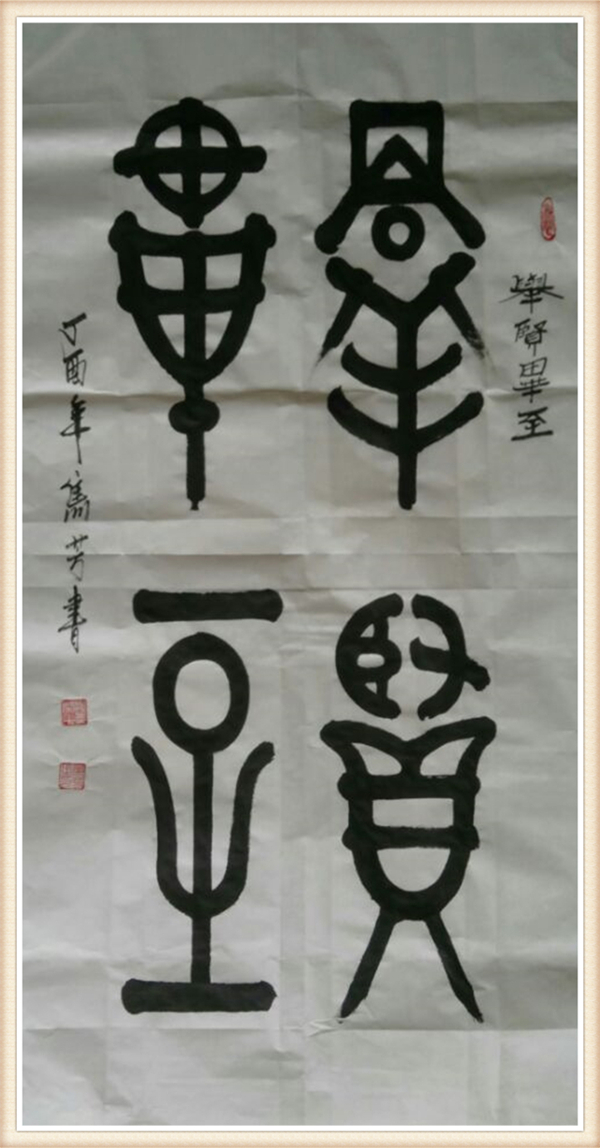 舉賢畢至
羣賢
畢至
丁酉年雋芳書